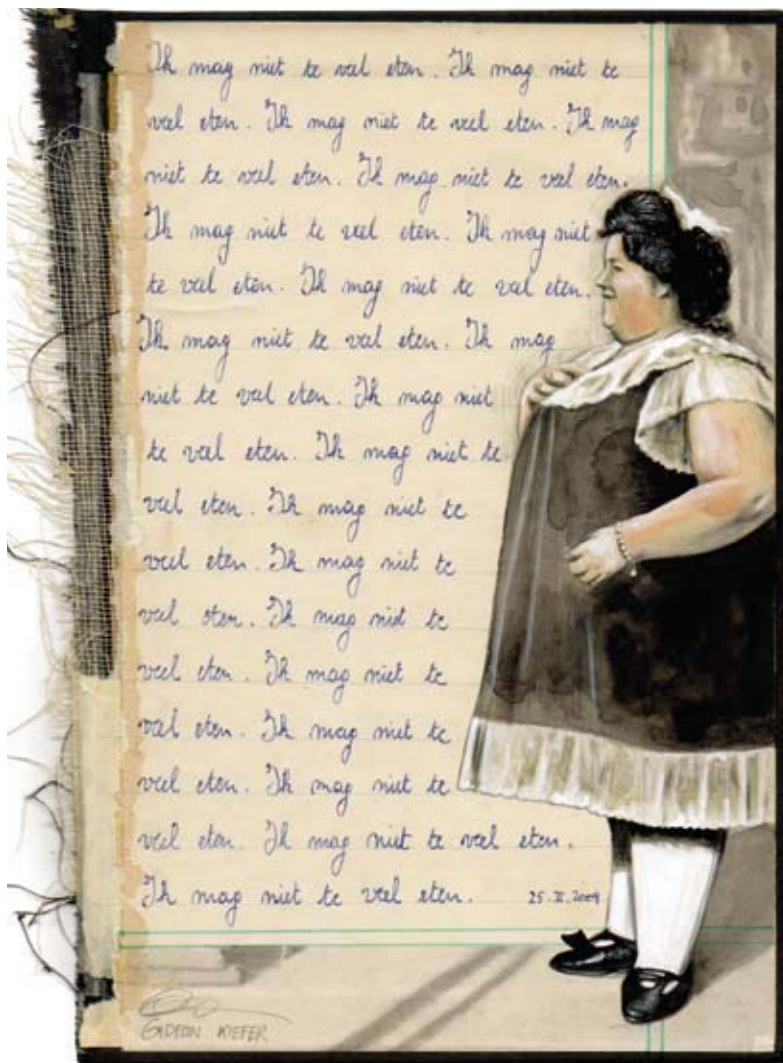 Ik mag niet te veel eten. Ik mag niet te
veel eten. Ik mag niet te veel eten. Ik mag
niet te veel eten. Ik mag niet te veel eten.
Ik mag niet te veel eten. Ik mag niet
te veel eten. Ik mag niet te veel eten.
Ik mag niet te veel eten. Ik mag
niet te veel eten. Ik mag niet
te veel eten. Ik mag niet te
veel eten. Ik mag niet te
veel eten. Ik mag niet te
veel eten. Ik mag niet te
veel eten. Ik mag niet te
veel eten. Ik mag niet te
veel eten. Ik mag niet te
veel eten. Ik mag niet te veel eten.
Ik mag niet te veel eten. 25.II.2009
GIDEON KIEFER